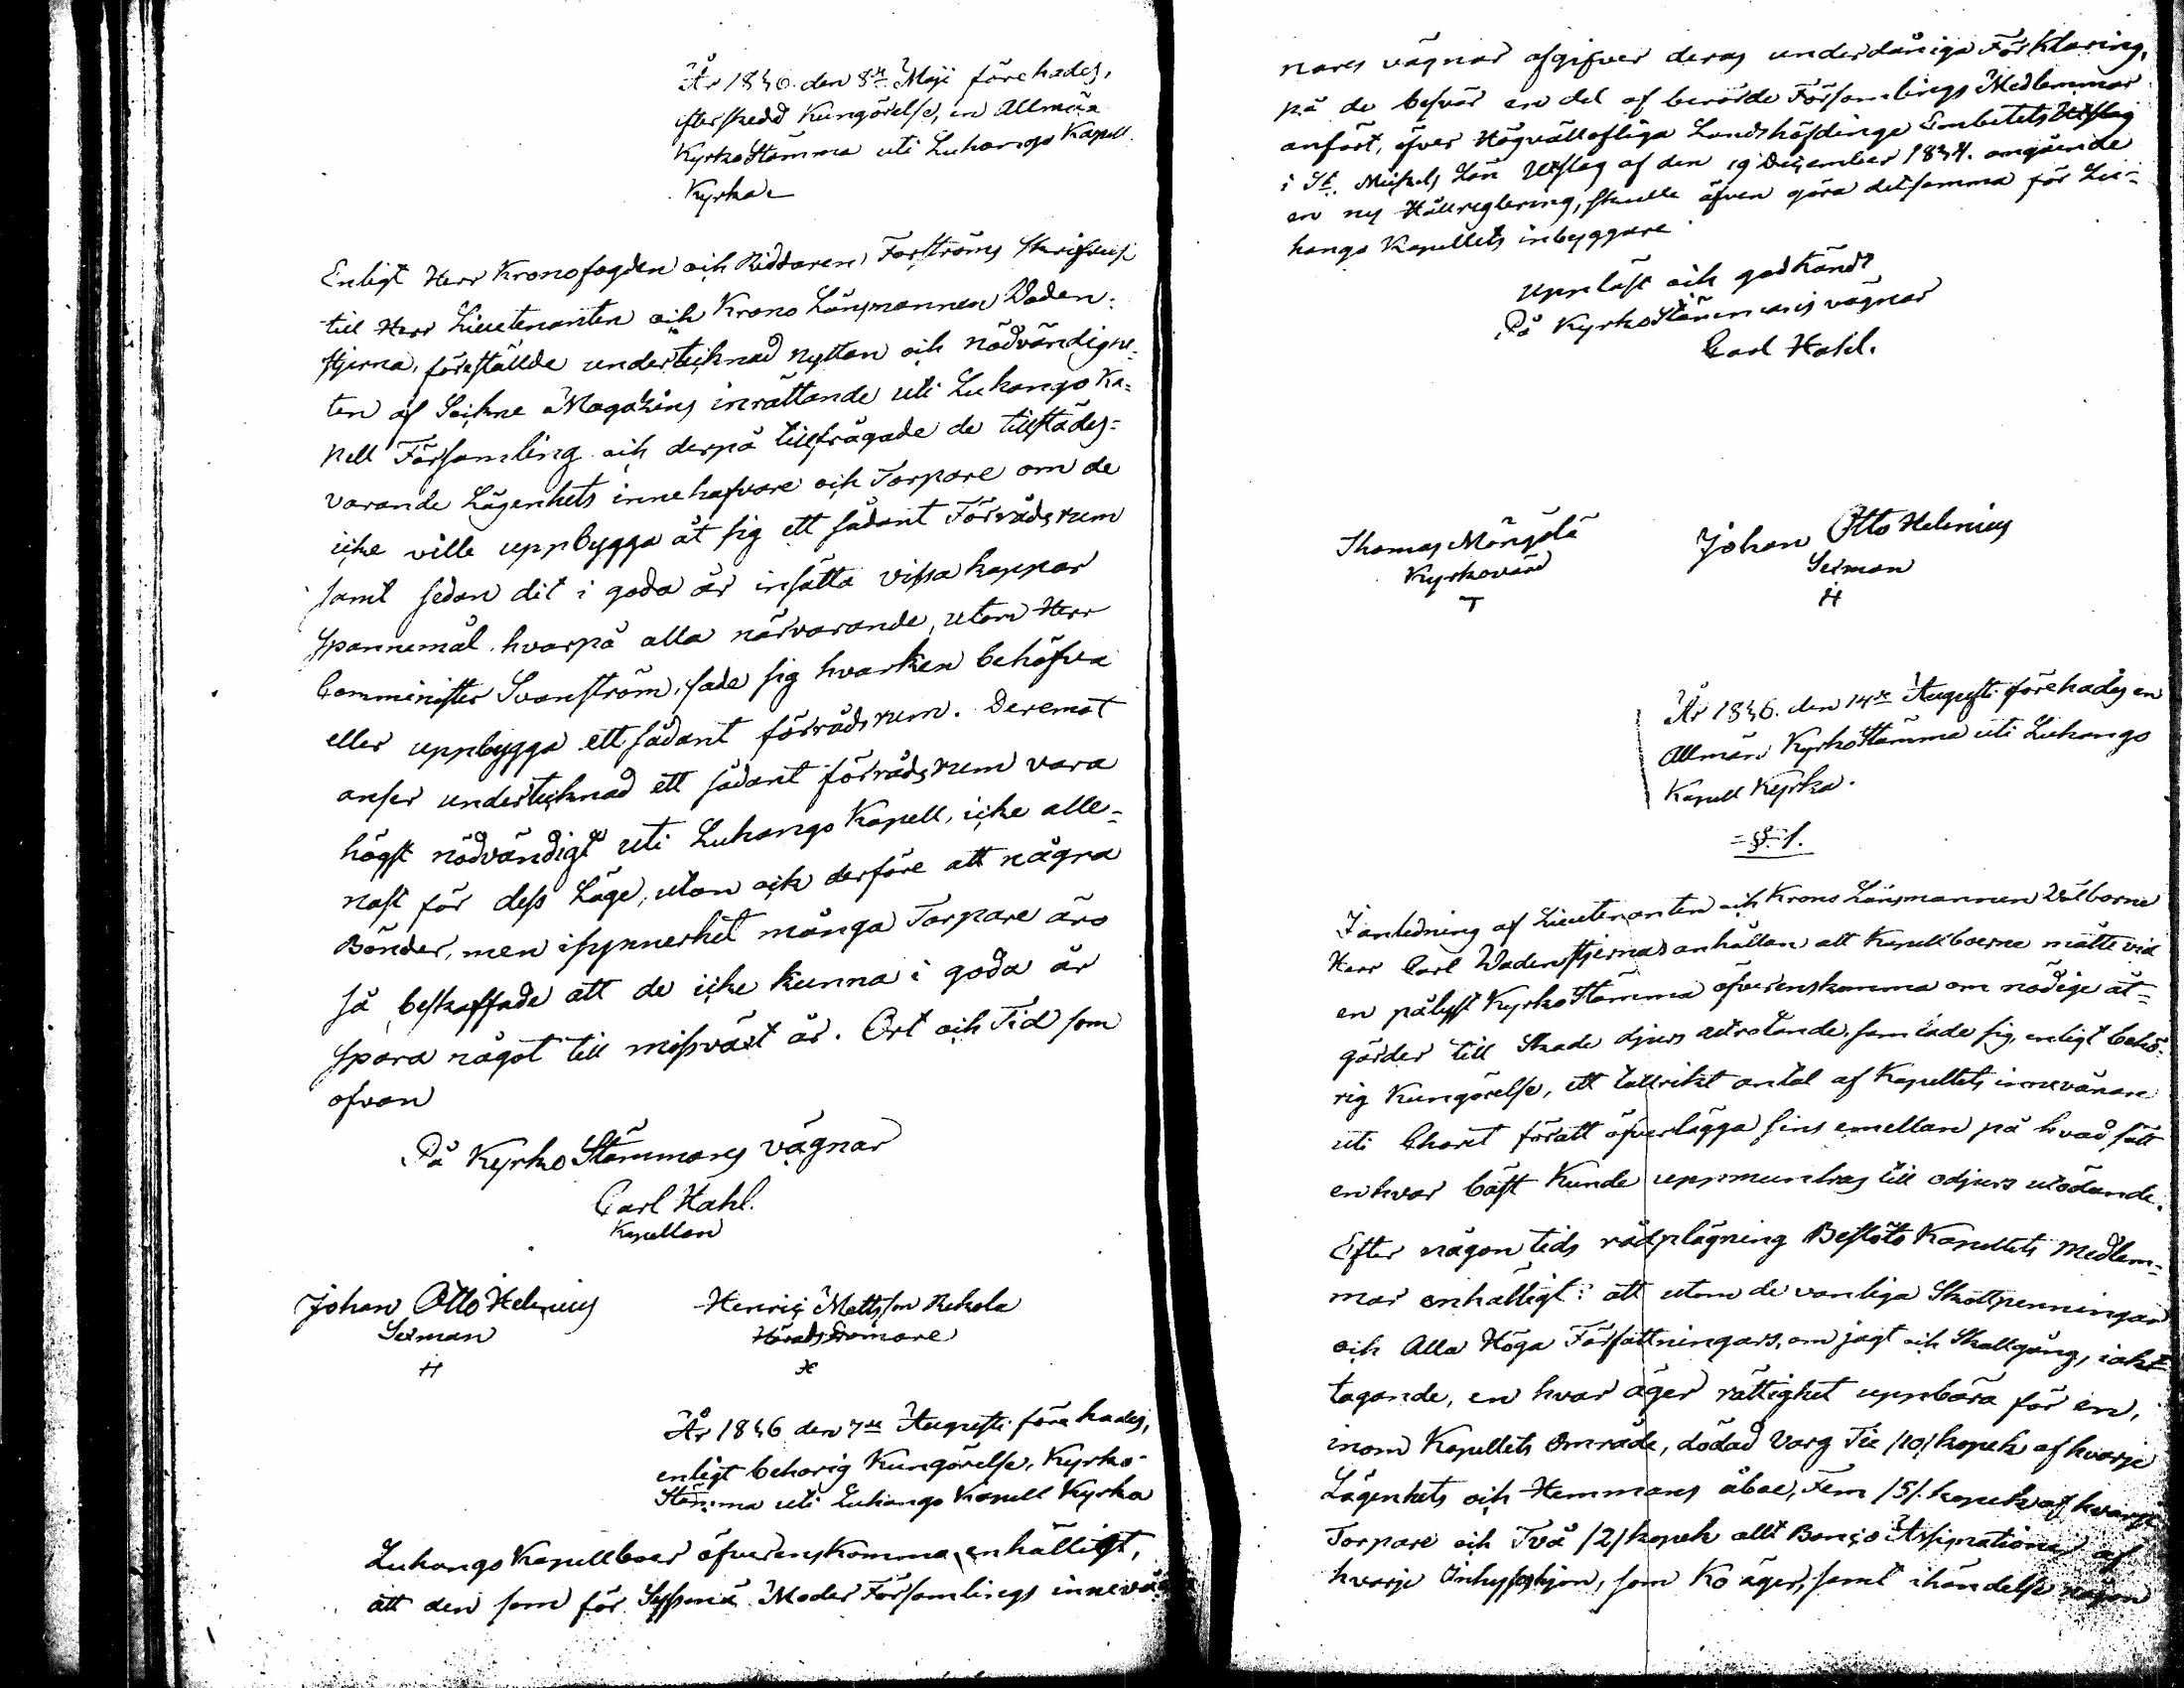 År 1846. den 8de Maji förehades,
efter skedd Kungörelse, en Allmän
KyrkoStämma uti Luhango Kapell
Kyrka
Enligt Herr Kronofogden och Riddaren Forströms skrifvelse
till Herr Lieutenanten och Krono Länsmannen Waden-
stjerna, föreställde undertecknad nyttan och nödvändighe-
ten af Sockne Magazins inrättande uti Luhango Ka-
pell Församling och derpå tillfrågade de tillstädes-
varande Lägenhets innehafvare och Torpare om de
icke ville uppbygga åt sig ett sådant Förråds rum
samt sedan dit i goda år insätta vissa kappar
Spannemål. hvarpå alla närvarande, utom Herr
Comminister Svanström, sade sig hvarken behöfva
eller uppbygga ett sådant förråds rum. Deremot
anser undertecknad ett sådant förråds rum vara
högst nödvändigt uti Luhango Kapell, icke alle-
nast för dess Läge, utan och derföre att några
Bönder, men isynnerhet många Torpare äro
så beskaffade att de icke kunna i goda år
spara något till missväxt år. Ort och Tid som
ofvan
På Kyrko Stämmans vägnar
Carl Hahl.
Kapellan
Johan Otto Helenius
Sexman
H
Henric Mattsson Rekola
Härads Domare
År 1846 den 7de Augusti förehades,
enligt behorig Kungörelse, Kyrko-
Stämma uti Luhango Kapell Kyrka
Luhango Kapellboer öfverenskomma enhälligt,
att den som för Sysmä Moder Församlings innevå-
nares vägnar afgifver deras underdåniga Förklaring,
på de besvär en del af berörde Församlings Medlemmar
anfört, öfver Högvällofliga Landshöfdinge Embetets Utslag
i St. Michels Län Utslag af den 19 December 1844. angående
en ny Hållreglering, skulle äfven göra detsamma för Lu-
hango Kapellets inbyggare
Uppläst och godkändt
På KyrkoStämmans vägnar
Carl Hahl.
Thomas
Kyrkovärd
T
Johan Otto Helenius
Sexman
H
År 1846. den 14de Augusti förehades en
Allmän KyrkoStämma uti Luhango
Kapell Kyrka.
§ 1.
I anledning af Lieutenanten och Krono Länsmannen Välborne
Herr Carl Wadenstjernas anhållan att Kapellboerne måtte vid
en pålyst KyrkoStämma öfverenskomma om nödige åt-
gärder till Skade djurs utrotande, samlade sig, enligt behö-
rig Kungörelse, ett talrikt antal af Kapellets innevånare
uti Choret föratt öfverlägga sins emellan på hvad sätt
en hvar bäst Kunde uppmuntras till odjurs utödande.
Efter någon tids rådplägning Beslöto Kapellets Medlem-
mar enhälligt: att utom de vanliga Skottpenningar
och Alla Höga Författningars, om jagt och Skallgång, iakt-
tagande, en hvar äger rättighet uppbära för en,
inom Kapellets Område, dödad Varg Tie /10/ kopek af hvarje
Lägenhets och Hemmans åboe, Fem /5/ kopek af hvarje
Torpare och Två /2/ kopek allt Banco Assignationer af
hvarje Inhyseshjon, som Ko äger, samt ihändelse någon